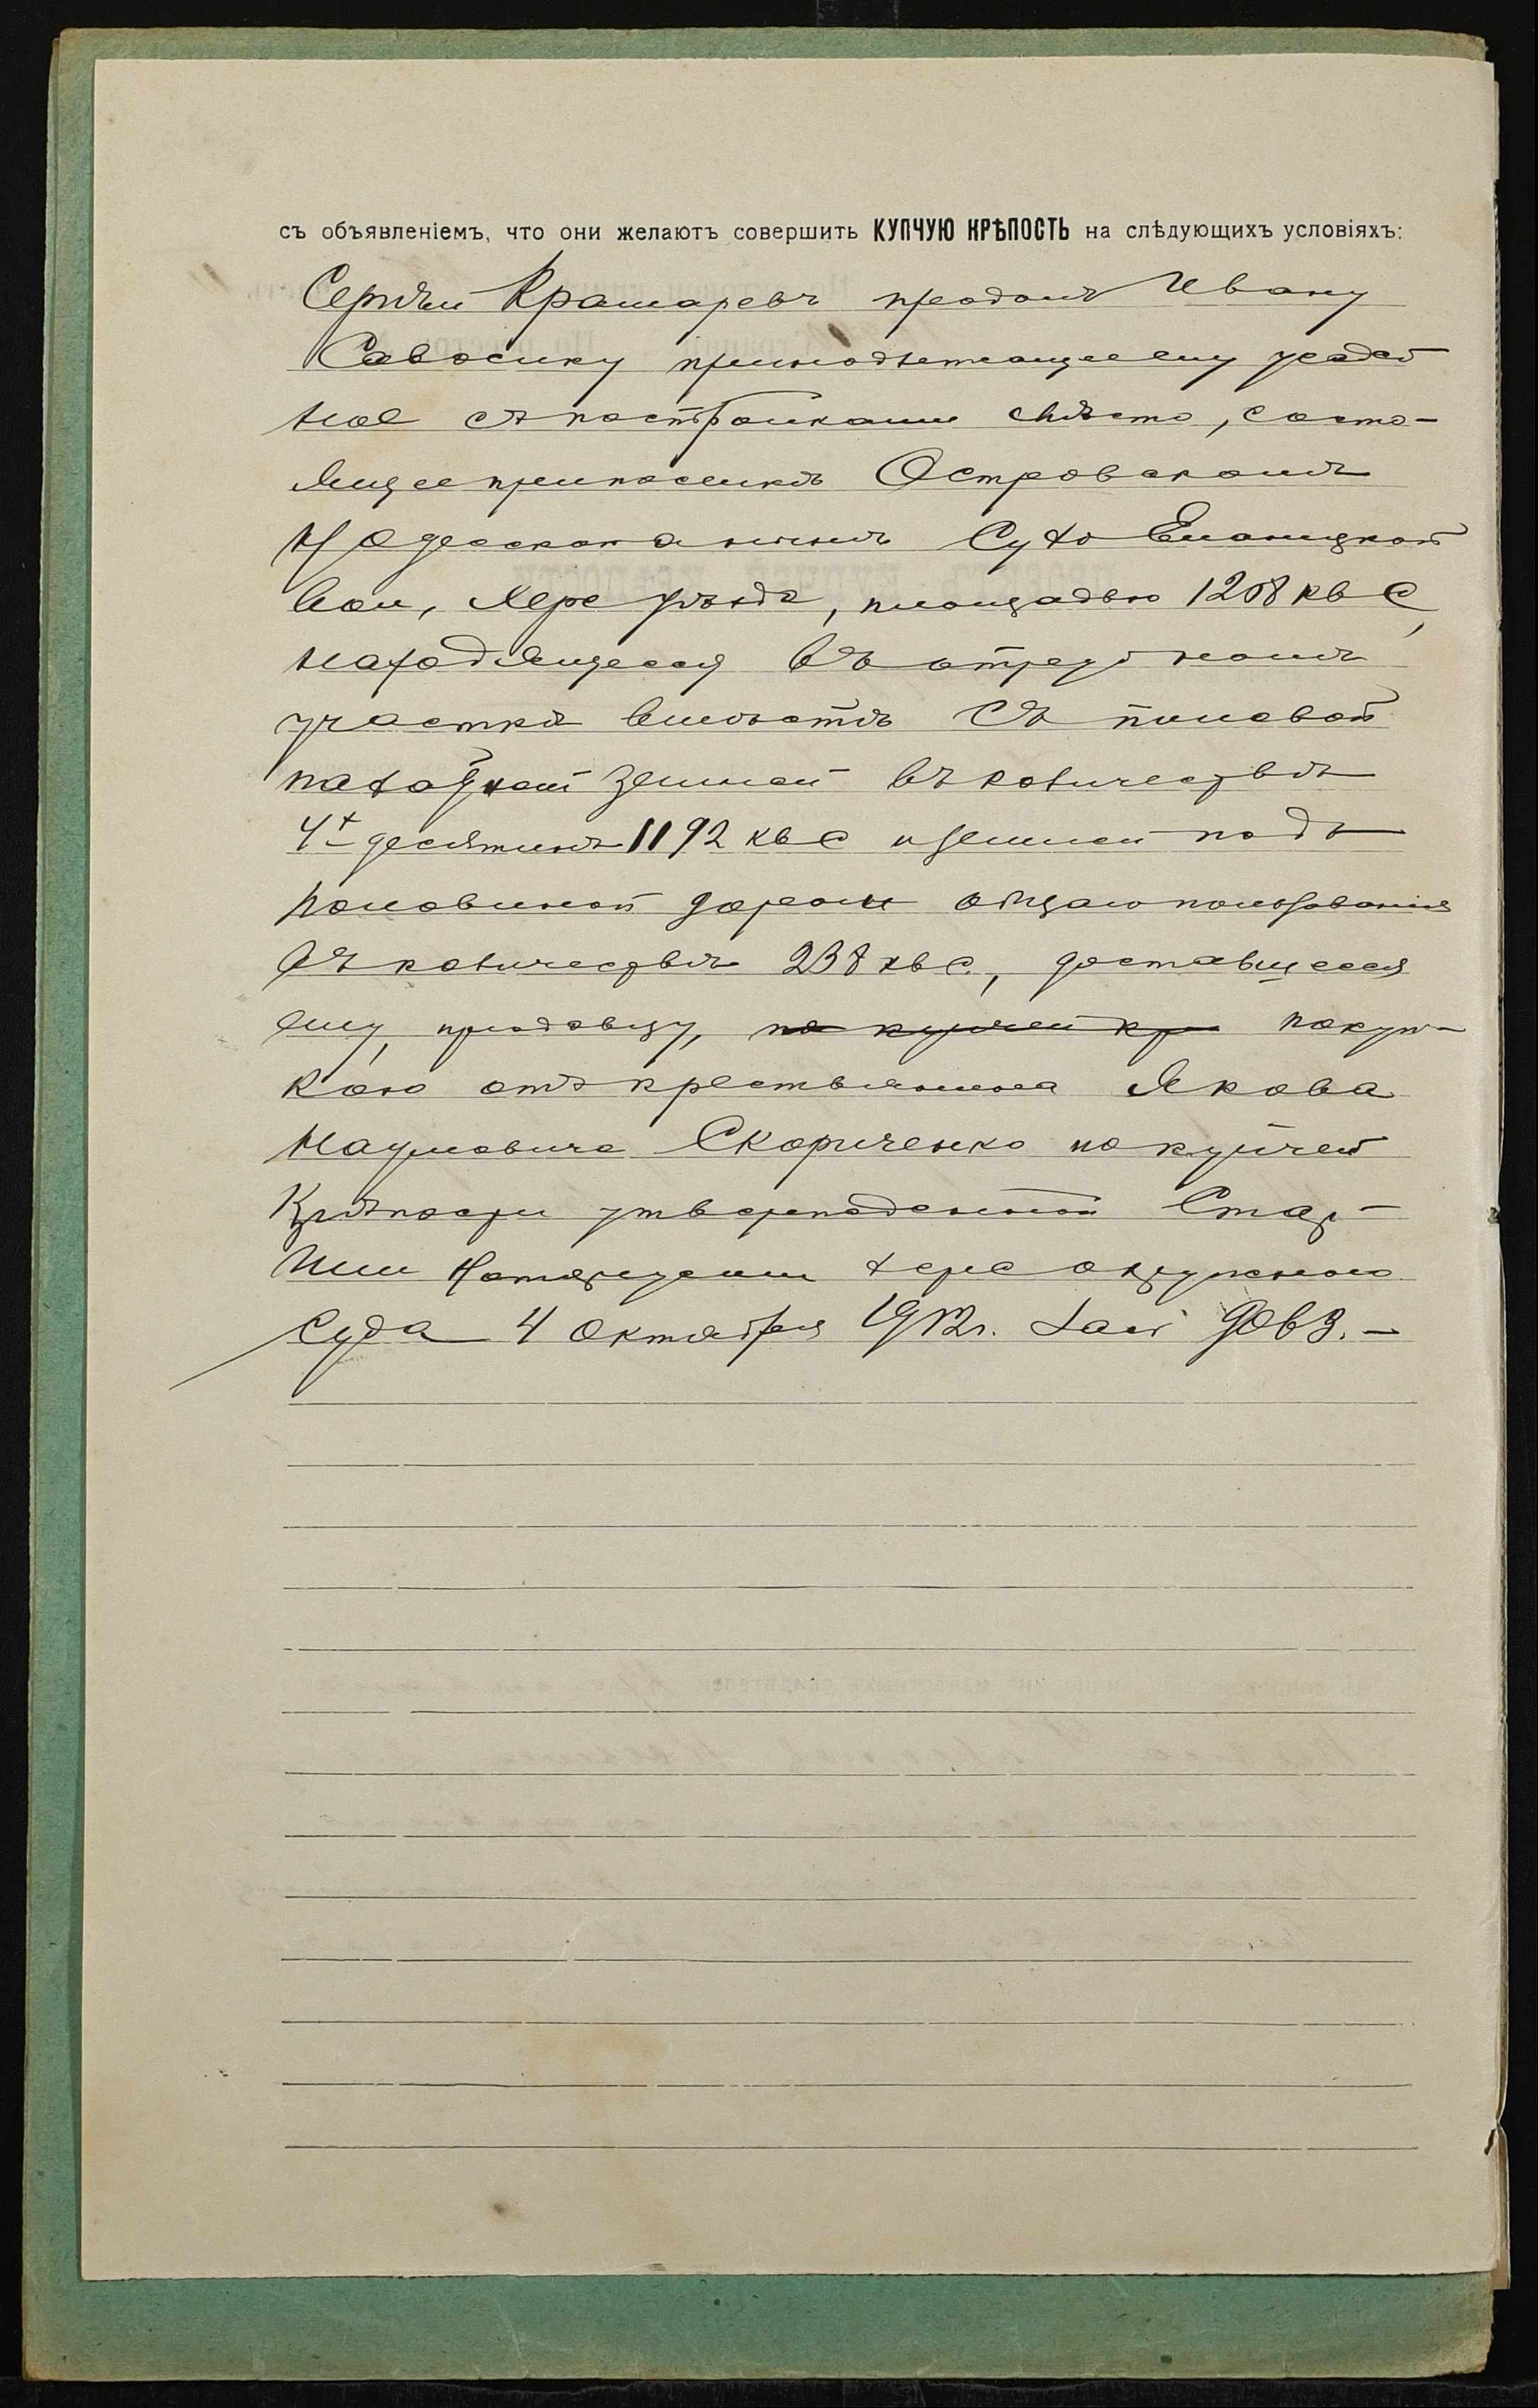 съ объявленіемъ, что они желаютъ совершить КУПЧУЮ КРѢПОСТЬ на слѣдующихъ условіяхъ:
Сергѣй Крамаревъ продалъ Ивану
Савосику принадлежащее ему усадеб
ное съ постройками мѣсто, состо-
ящее при поселкѣ Островскомъ
Сухо Еланецкой
Вол, Херс уѣзда, площадью 1208 кв с,
находящееся въ отрубномъ
участкѣ вмѣстѣ съ полевой
пахатной землей въ количествѣ
4х десятинъ 1192 кв с и землей подъ
половиной дороги общаго пользованія
въ количествѣ 238 кв с., доставшееся
ему, продавцу, по купчей кр покуп-
кою отъ крестьянина Якова
Наумовича Скориченко по купчей
крѣпости утвержденной Стар-
шим Нотаріусом Херс окружного
Суда 4 Октября 1912 г.